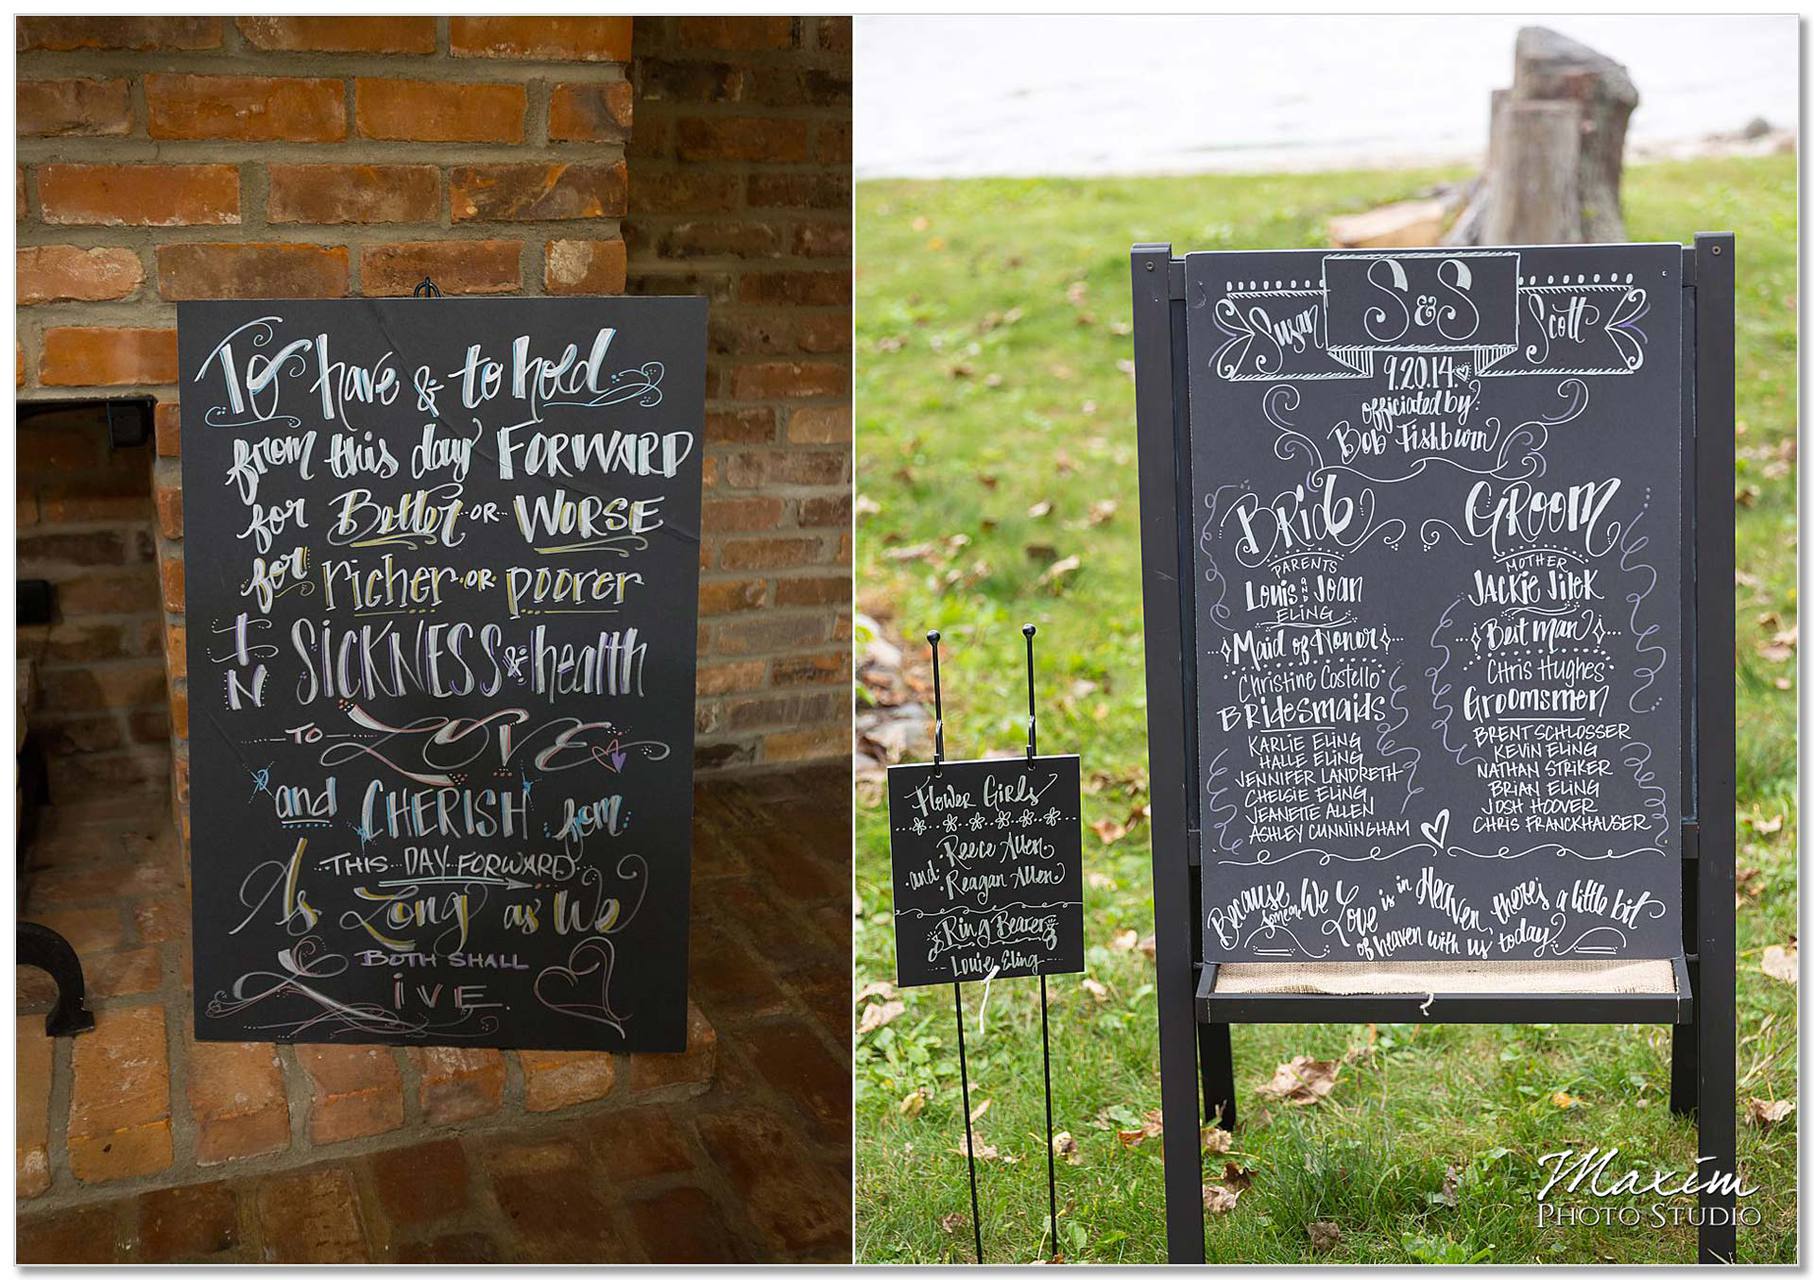 To have & to hold
from this day FORWARD
for Better OR WORSE
for richer OR poorer
IN SICKNESS & health
TO LOVE
and CHERISH from
THIS DAY FORWARD
As Long as We
BOTH SHALL
LIVE.
Flower Girls
Reece Allen
and Reagan Allen
Ring Bearer
Louie Eling
Susan S & S Scott
9.20.14
officiated by:
Bob Fishburn
Bride
PARENTS
Louis AND Joan
ELING
Maid of Honor
Christine Costello
Bridesmaids
KARLIE ELING
HALLE ELING
JENNIFER LANDRETH
CHELSIE ELING
JEANETTE ALLEN
ASHLEY CUNNINGHAM
Groom
MOTHER
Jackie Jilek
Best Man
Chris Hughes
Groomsmen
BRENT SCHLOSSER
KEVIN ELING
NATHAN STRIKER
BRIAN ELING
JOSH HOOVER
CHRIS FRANCKHAUSER
Because someone We Love is in Heaven, there's a little bit
of heaven with us today
Maxim
PHOTO STUDIO